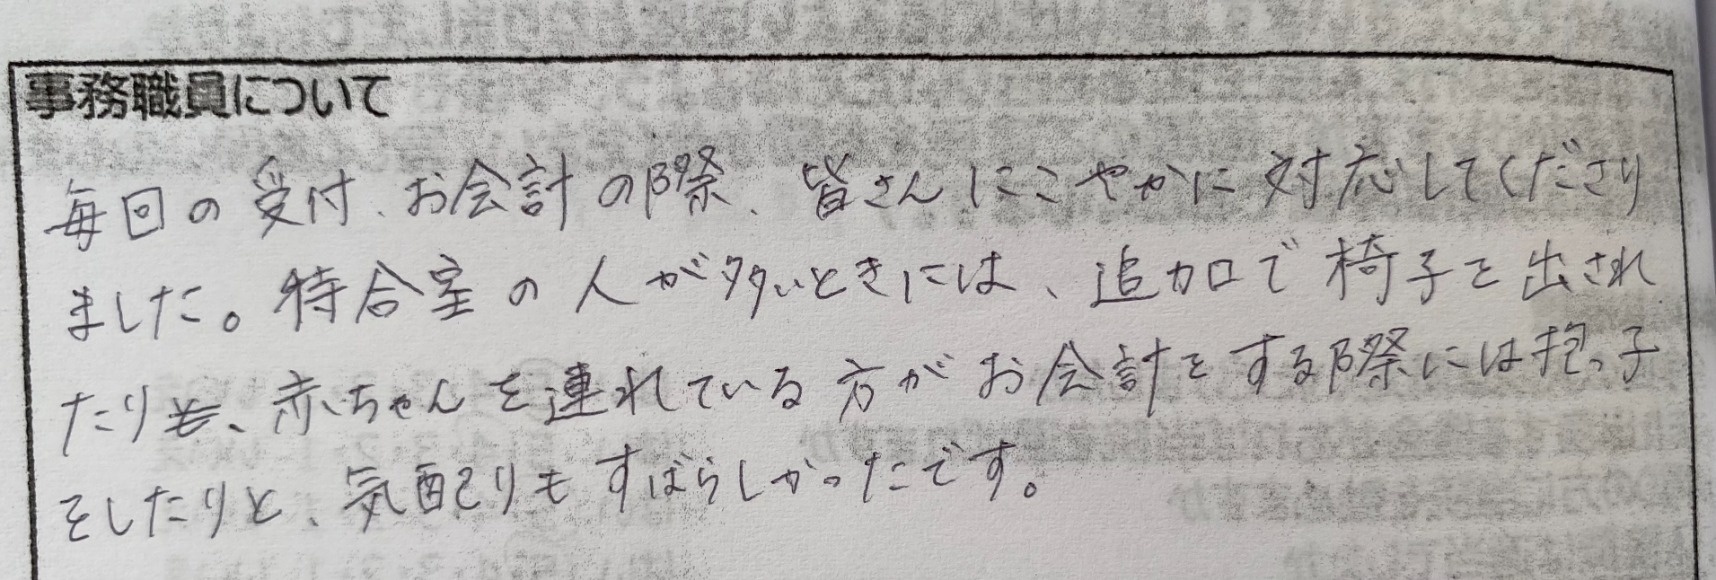 事務職員について
毎回の受付、お会計の際、皆さんにこやかに対応してくださり
ました。待合室の人が多いときには、追加で椅子を出され
たり、赤ちゃんを連れている方がお会計をする際には抱っ子
をしたりと、気配りもすばらしかったです。